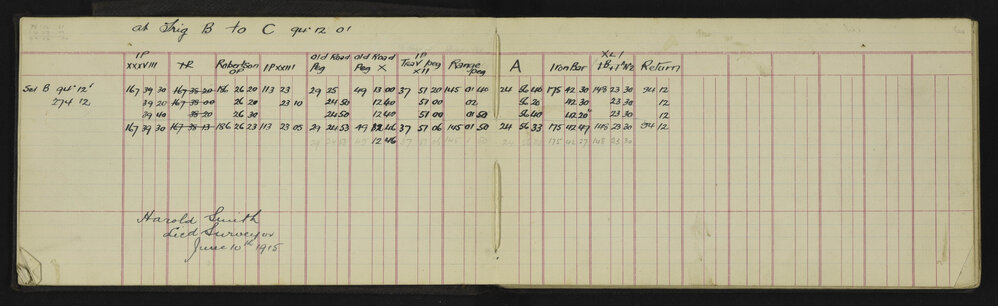 at Trig B to C 94° 12' 0"
IP XXXVIII TR Robertson OP IP XXIII Old Road Peg Old Road Peg X IP Trav peg XII Range peg A Iron Bar Return
Set B 94° 12' 167 39 30 167 38 20 186 26 20 113 23 29 25 49 13 00 37 51 20 145 01 40 24 56 40 175 42 30 148 23 30 94 12
274 12 39 20 167 38 00 26 30 23 10 24 50 12 40 51 00 02 56 20 42 30 23 30 12
39 40 38 20 26 20 24 50 12 40 51 00 01 50 56 40 42 20 23 30 12
167 39 30 167 38 13 186 26 23 113 23 05 29 24 53 49 12 46 37 51 06 145 01 50 24 56 33 175 42 27 148 23 30 94 12
29 24 53 49 12 46 37 51 06 145 24 56 175 42 27 148 23 30
Harold Smith
Licd Surveyor
June 10th 1915